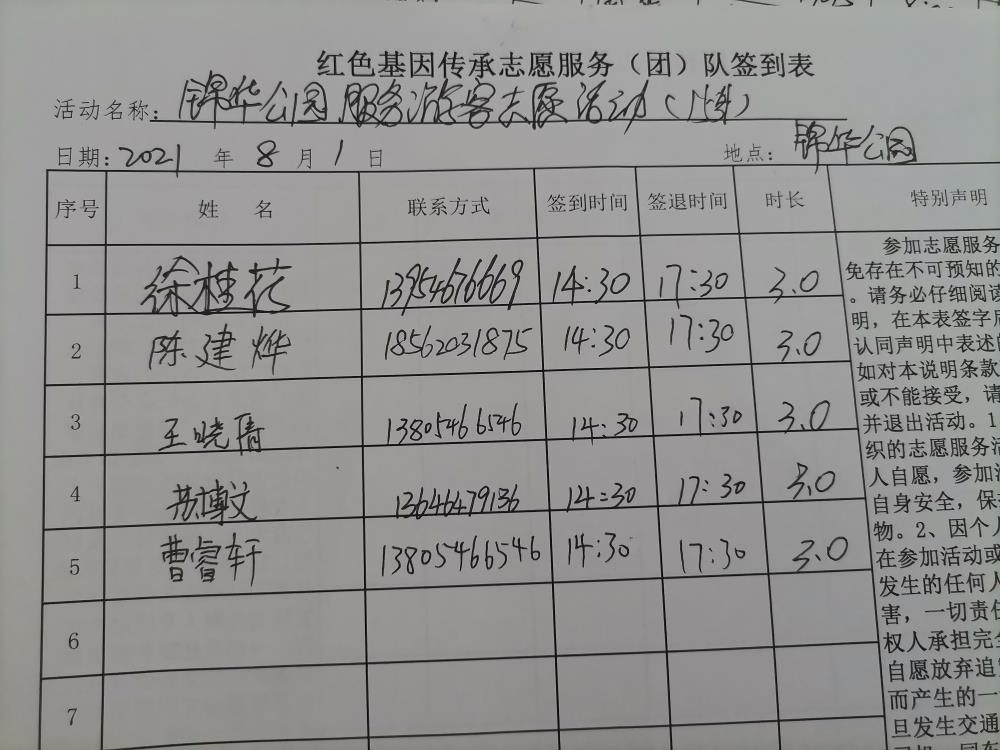 红色基因传承志愿服务（团）队签到表
活动名称：锦华公园服务游客志愿活动（
日期：2021 年 8 月 1 日 地点：锦华公园
序号 姓 名 联系方式 签到时间 签退时间 时长 特别声明
1 徐桂花 13954676669 14:30 17:30 3.0
2 陈建烨 18562031875 14:30 17:30 3.0
3 王晓倩 13805466546 14:30 17:30 3.0
4 苏博文 13646479136 14:30 17:30 3.0
5 曹睿轩 13805466546 14:30 17:30 3.0
6
7
参加志愿服务
免存在不可预知的
。请务必仔细阅读
明，在本表签字后
认同声明中表述的
如对本说明条款
或不能接受，请
并退出活动。1
织的志愿服务活
人自愿，参加活
自身安全，保
物。2、因个人
在参加活动或
发生的任何人
害，一切责任
权人承担完全
自愿放弃追
而产生的一
旦发生交通